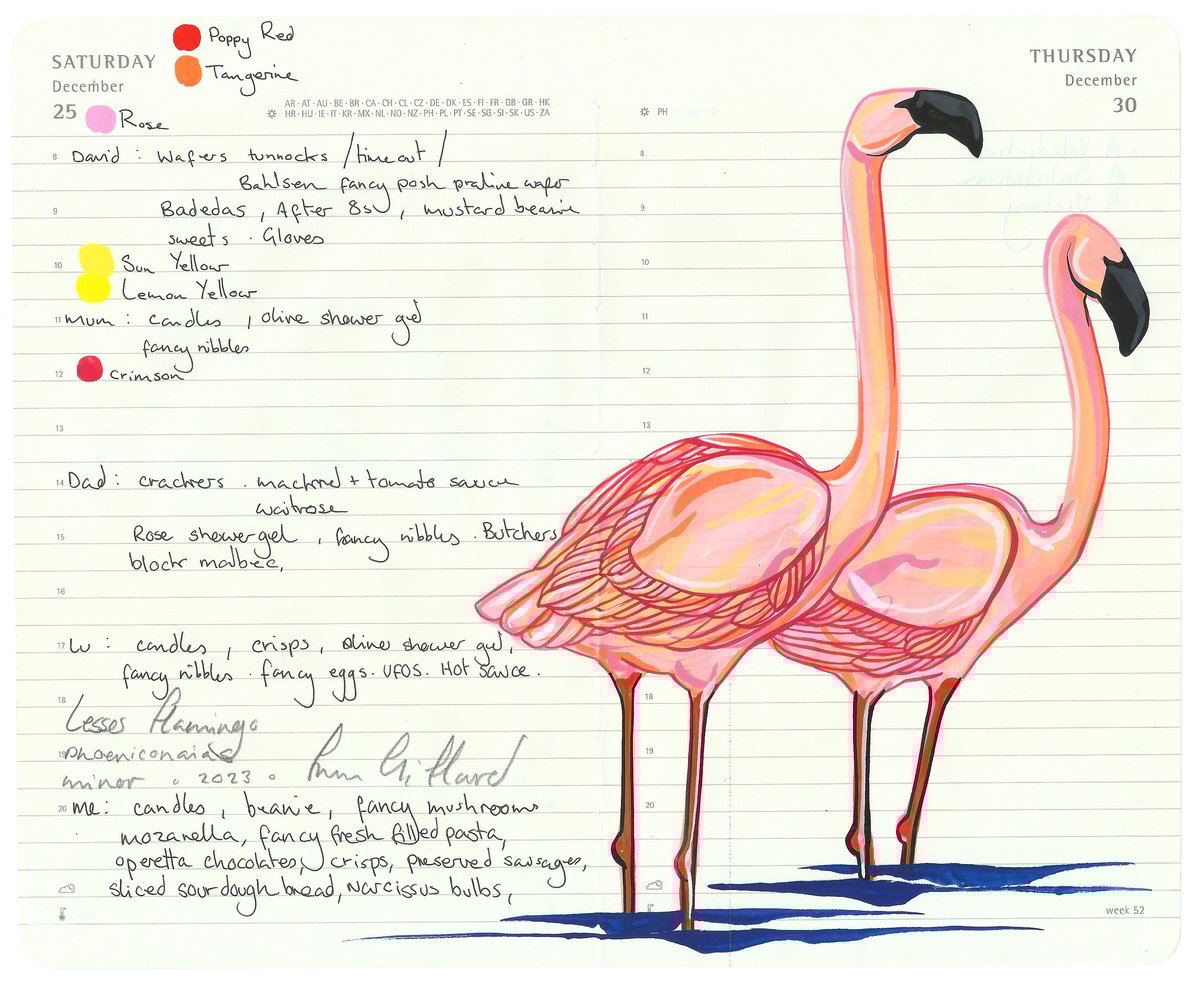 Poppy Red
SATURDAY
December
Tangerine
25
Rose
AR · AT · AU · BE · BR · CA · CH · CL · CZ · DE · DK · ES · FI · FR · GB · GR · HK
HR · HU · IE · IT · KR · MX · NL · NO · NZ · PH · PL · PT · SE · SG · SI · SK · US · ZA
8 David : Wafers tunnocks / timeout /
Bahlsen fancy posh praline wafer
9 Badedas , After 8s , mustard beanie
sweets . Gloves
10 Sun Yellow
Lemon Yellow
11 Mum : candles , olive shower gel
fancy nibbles
12 Crimson
13
14 Dad : crackers . mackerel + tomato sauce
waitrose
15 Rose shower gel , fancy nibbles . Butchers
block malbec,
16
17 Lu : candles , crisps , olive shower gel,
fancy nibbles . fancy eggs . UFOS . Hot Sauce .
18
Lesser Flamingo
19 Phoeniconaias
minor . 2023 .
20 me : candles , beanie , fancy mushrooms
mozanella, fancy fresh filled pasta,
operetta chocolates, crisps, preserved sausages,
sliced sourdough bread, Narcissus bulbs,
THURSDAY
December
30
PH
8
9
10
11
12
13
18
19
20
week 52